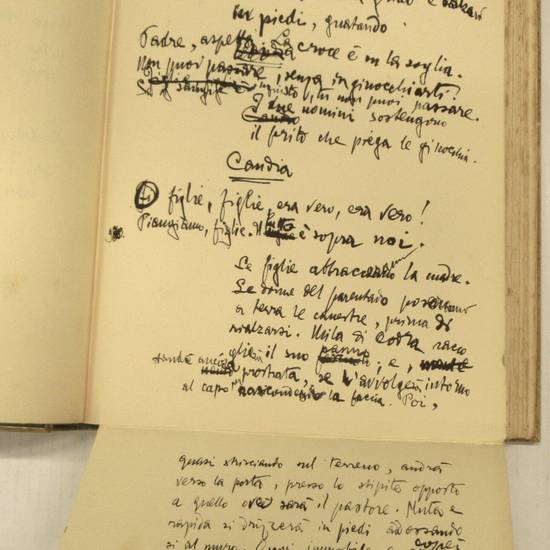 in piedi, guatando.
Padre, aspetta. La croce è su la soglia.
Non puoi passare, senza inginocchiarti.
Se il sangue è ingiusto, tu non puoi passare.
I due uomini sostengono
il ferito che piega le ginocchia.
Candia
O figlie, figlie, era vero, era vero!
Piangiamo, figlie. Il lutto è sopra noi.
Le figlie abbracciano la madre.
Le donne del parentado posano
a terra le canestre, prima di
rialzarsi. Mila di Codra racco
glie il suo panno; e,
ancora prostrata, se l'avvolge intorno
al capo nascondendo la faccia. Poi,
quasi strisciando sul terreno, andrà
verso la porta, presso lo stipite opposto
a quello ove sarà il pastore. Muta e
rapida si drizzerà in piedi addossando
si al muro.